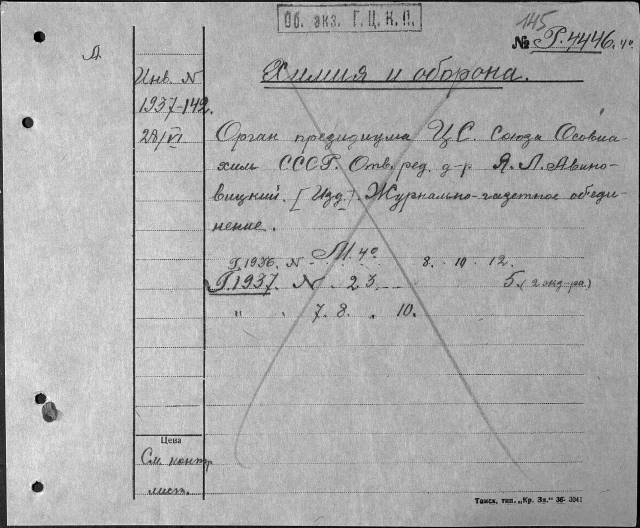 Об. экз. Г. Ц. К. П.
145
№ Р.4446. 4°
Л
Инв. N
1937-142.
28/VI
Химия и оборона.
Орган президиума Ц.С. Союза Осовиа-
хим СССР. Отв. ред. д-р Я. Л. Авино-
вицкий. [Изд.]. Журнально-газетное объеди-
нение.
Г.1936. N 4° 8. 10 12.
Г.1937. N 2 3 5 (2 экз-ра)
" " 7. 8. 10.
Цена
См. контр
лист.
Томск, тип. „Кр. Зн." 36- 3041